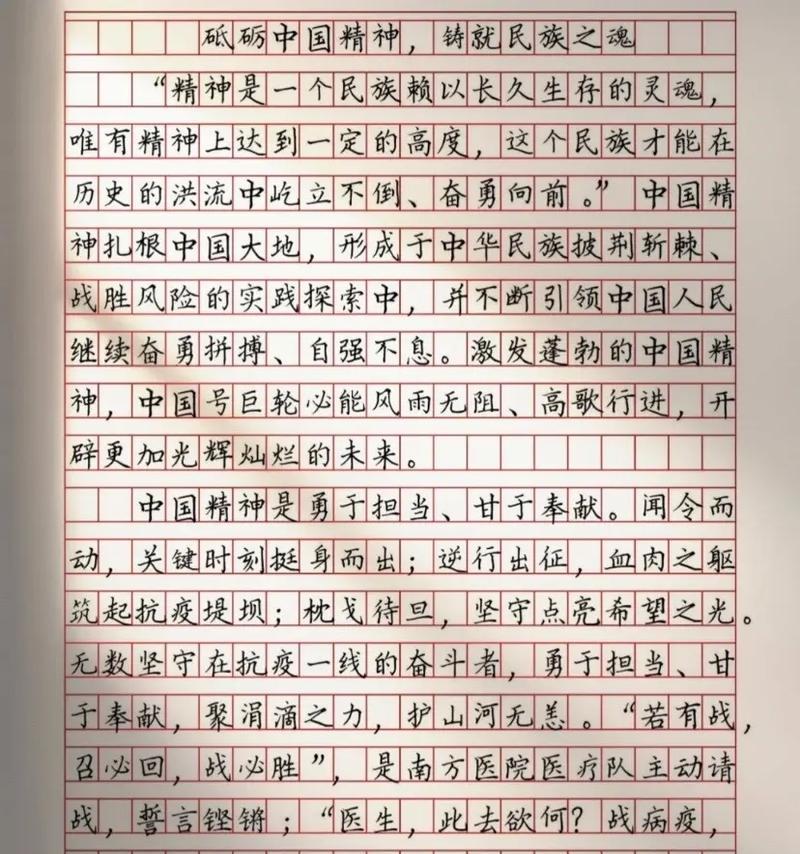 砥砺中国精神，铸就民族之魂
“精神是一个民族赖以长久生存的灵魂，
唯有精神上达到一定的高度，这个民族才能在
历史的洪流中屹立不倒、奋勇向前。”中国精
神扎根中国大地，形成于中华民族披荆斩棘、
战胜风险的实践探索中，并不断引领中国人民
继续奋勇拼搏、自强不息。激发蓬勃的中国精
神，中国号巨轮必能风雨无阻、高歌行进，开
辟更加光辉灿烂的未来。
中国精神是勇于担当、甘于奉献。闻令而
动，关键时刻挺身而出；逆行出征，血肉之躯
筑起抗疫堤坝；枕戈待旦，坚守点亮希望之光。
无数坚守在抗疫一线的奋斗者，勇于担当、甘
于奉献，聚涓滴之力，护山河无恙。“若有战，
召必回，战必胜”，是南方医院医疗队主动请
战，誓言铿锵；“医生，此去欲何？战病疫，